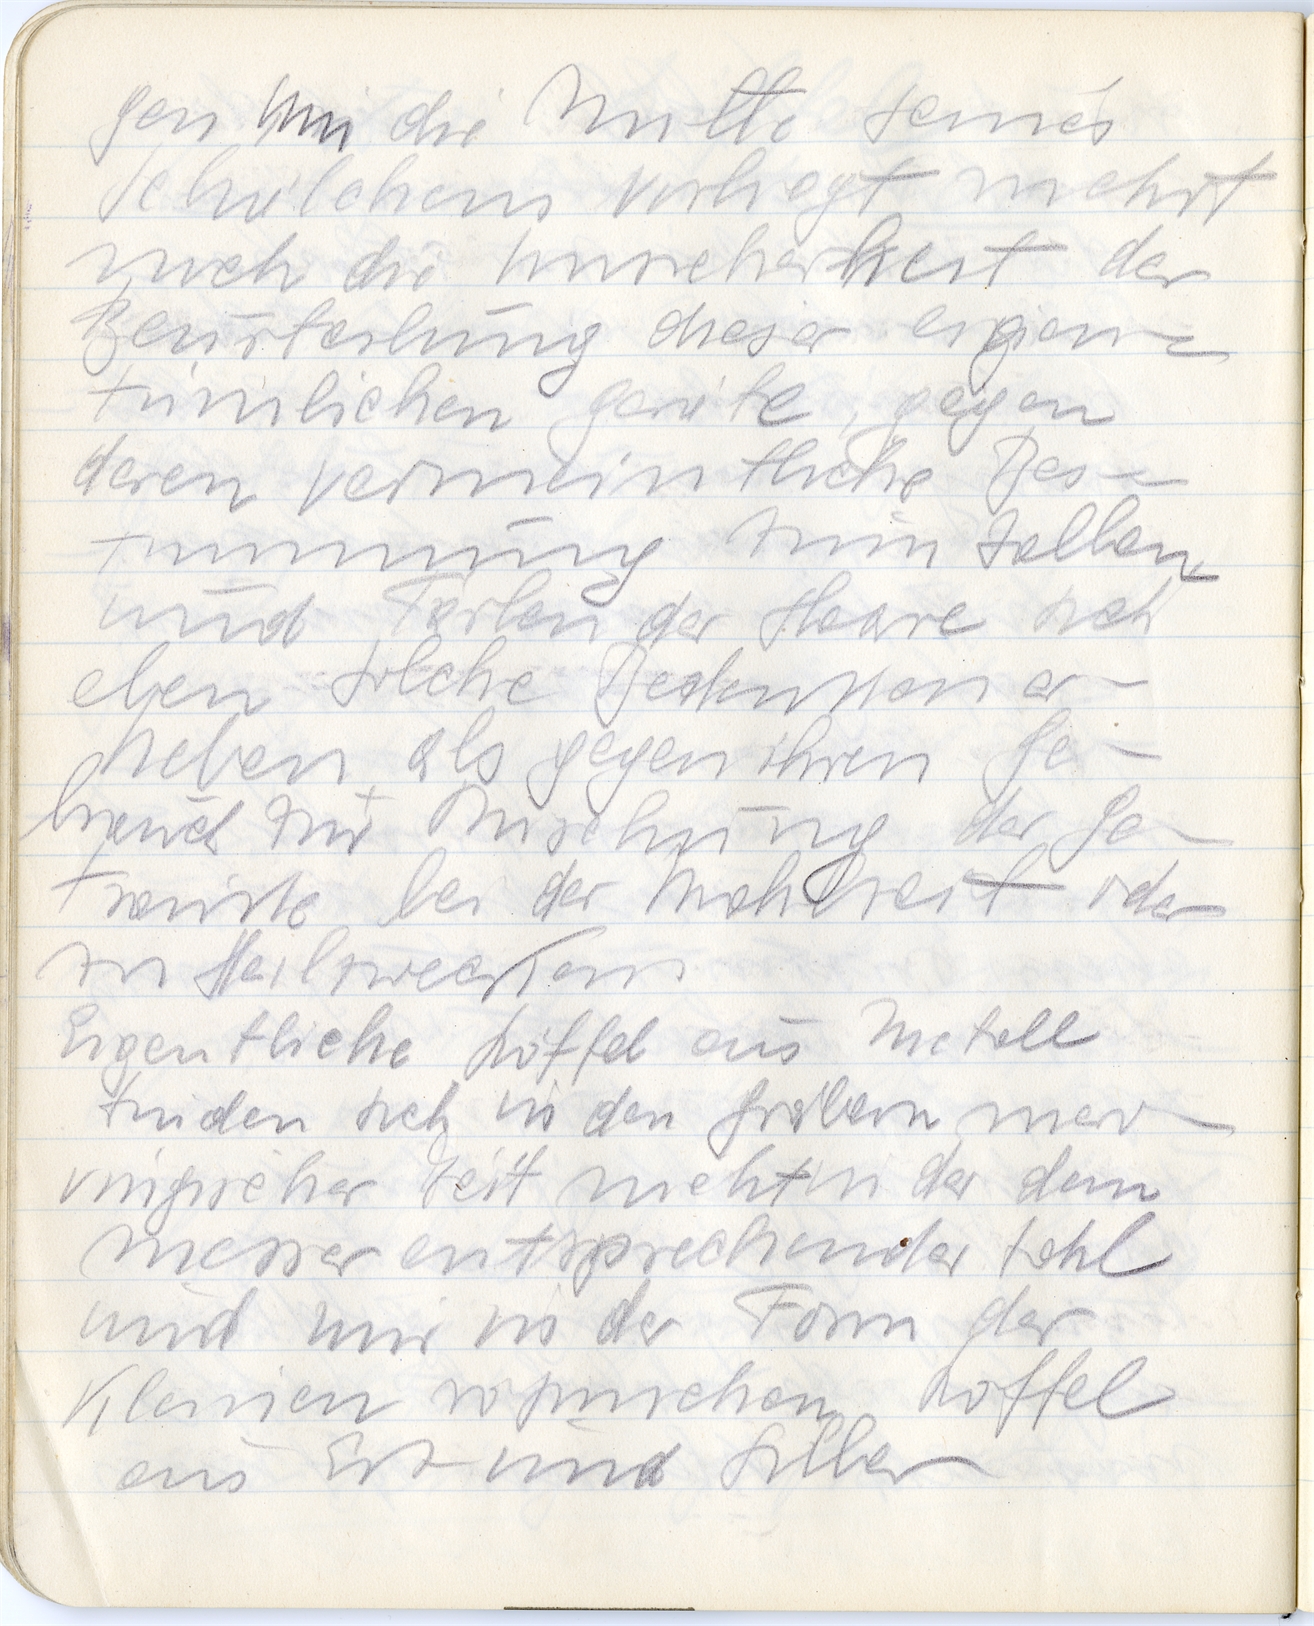 gen um die Mitte seines
Schälchens vorliegt mehrt
noch die Unsicherheit der
Beurteilung dieser eigen-
tümlichen geräte, gegen
deren vermeintliche Bes-
timmung zum Salben
und Färben der Haare sich
eben solche Bedenken er-
heben als gegen ihren Ge-
brauch zur Mischung der Ge-
tränke bei der Mahlzeit oder
zu Heilzwecken
Eigentliche Löffel aus Metall
finden sich in den Gräbern mero-
vingischer Zeit nicht in der dem
Messer entsprechender Zahl
und nur in der Form der
Kleinen römischen Löffel
aus Erz und Silber